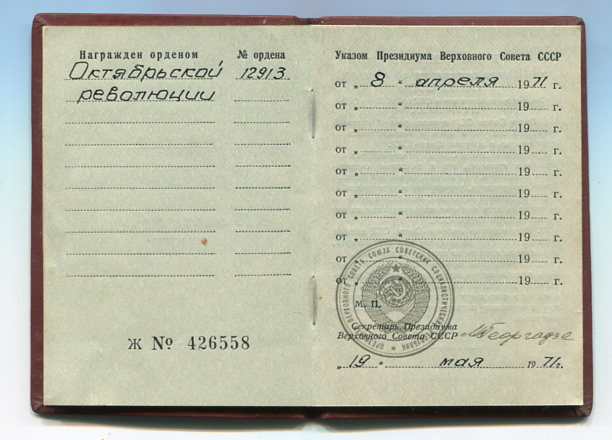 Награжден орденом
№ ордена
Октябрьской
12913
революции
Ж № 426558
Указом Президиума Верховного Совета СССР
от „ 8 “ апреля 1971 г.
от „ “ 19 г.
от „ “ 19 г.
от „ “ 19 г.
от „ “ 19 г.
от „ “ 19 г.
от „ “ 19 г.
от „ “ 19 г.
от „ “ 19 г.
от „ “ 19 г.
М. П.
Секретарь Президиума
Верховного Совета СССР
МГеоргадзе
„19 “ мая 1971 г.